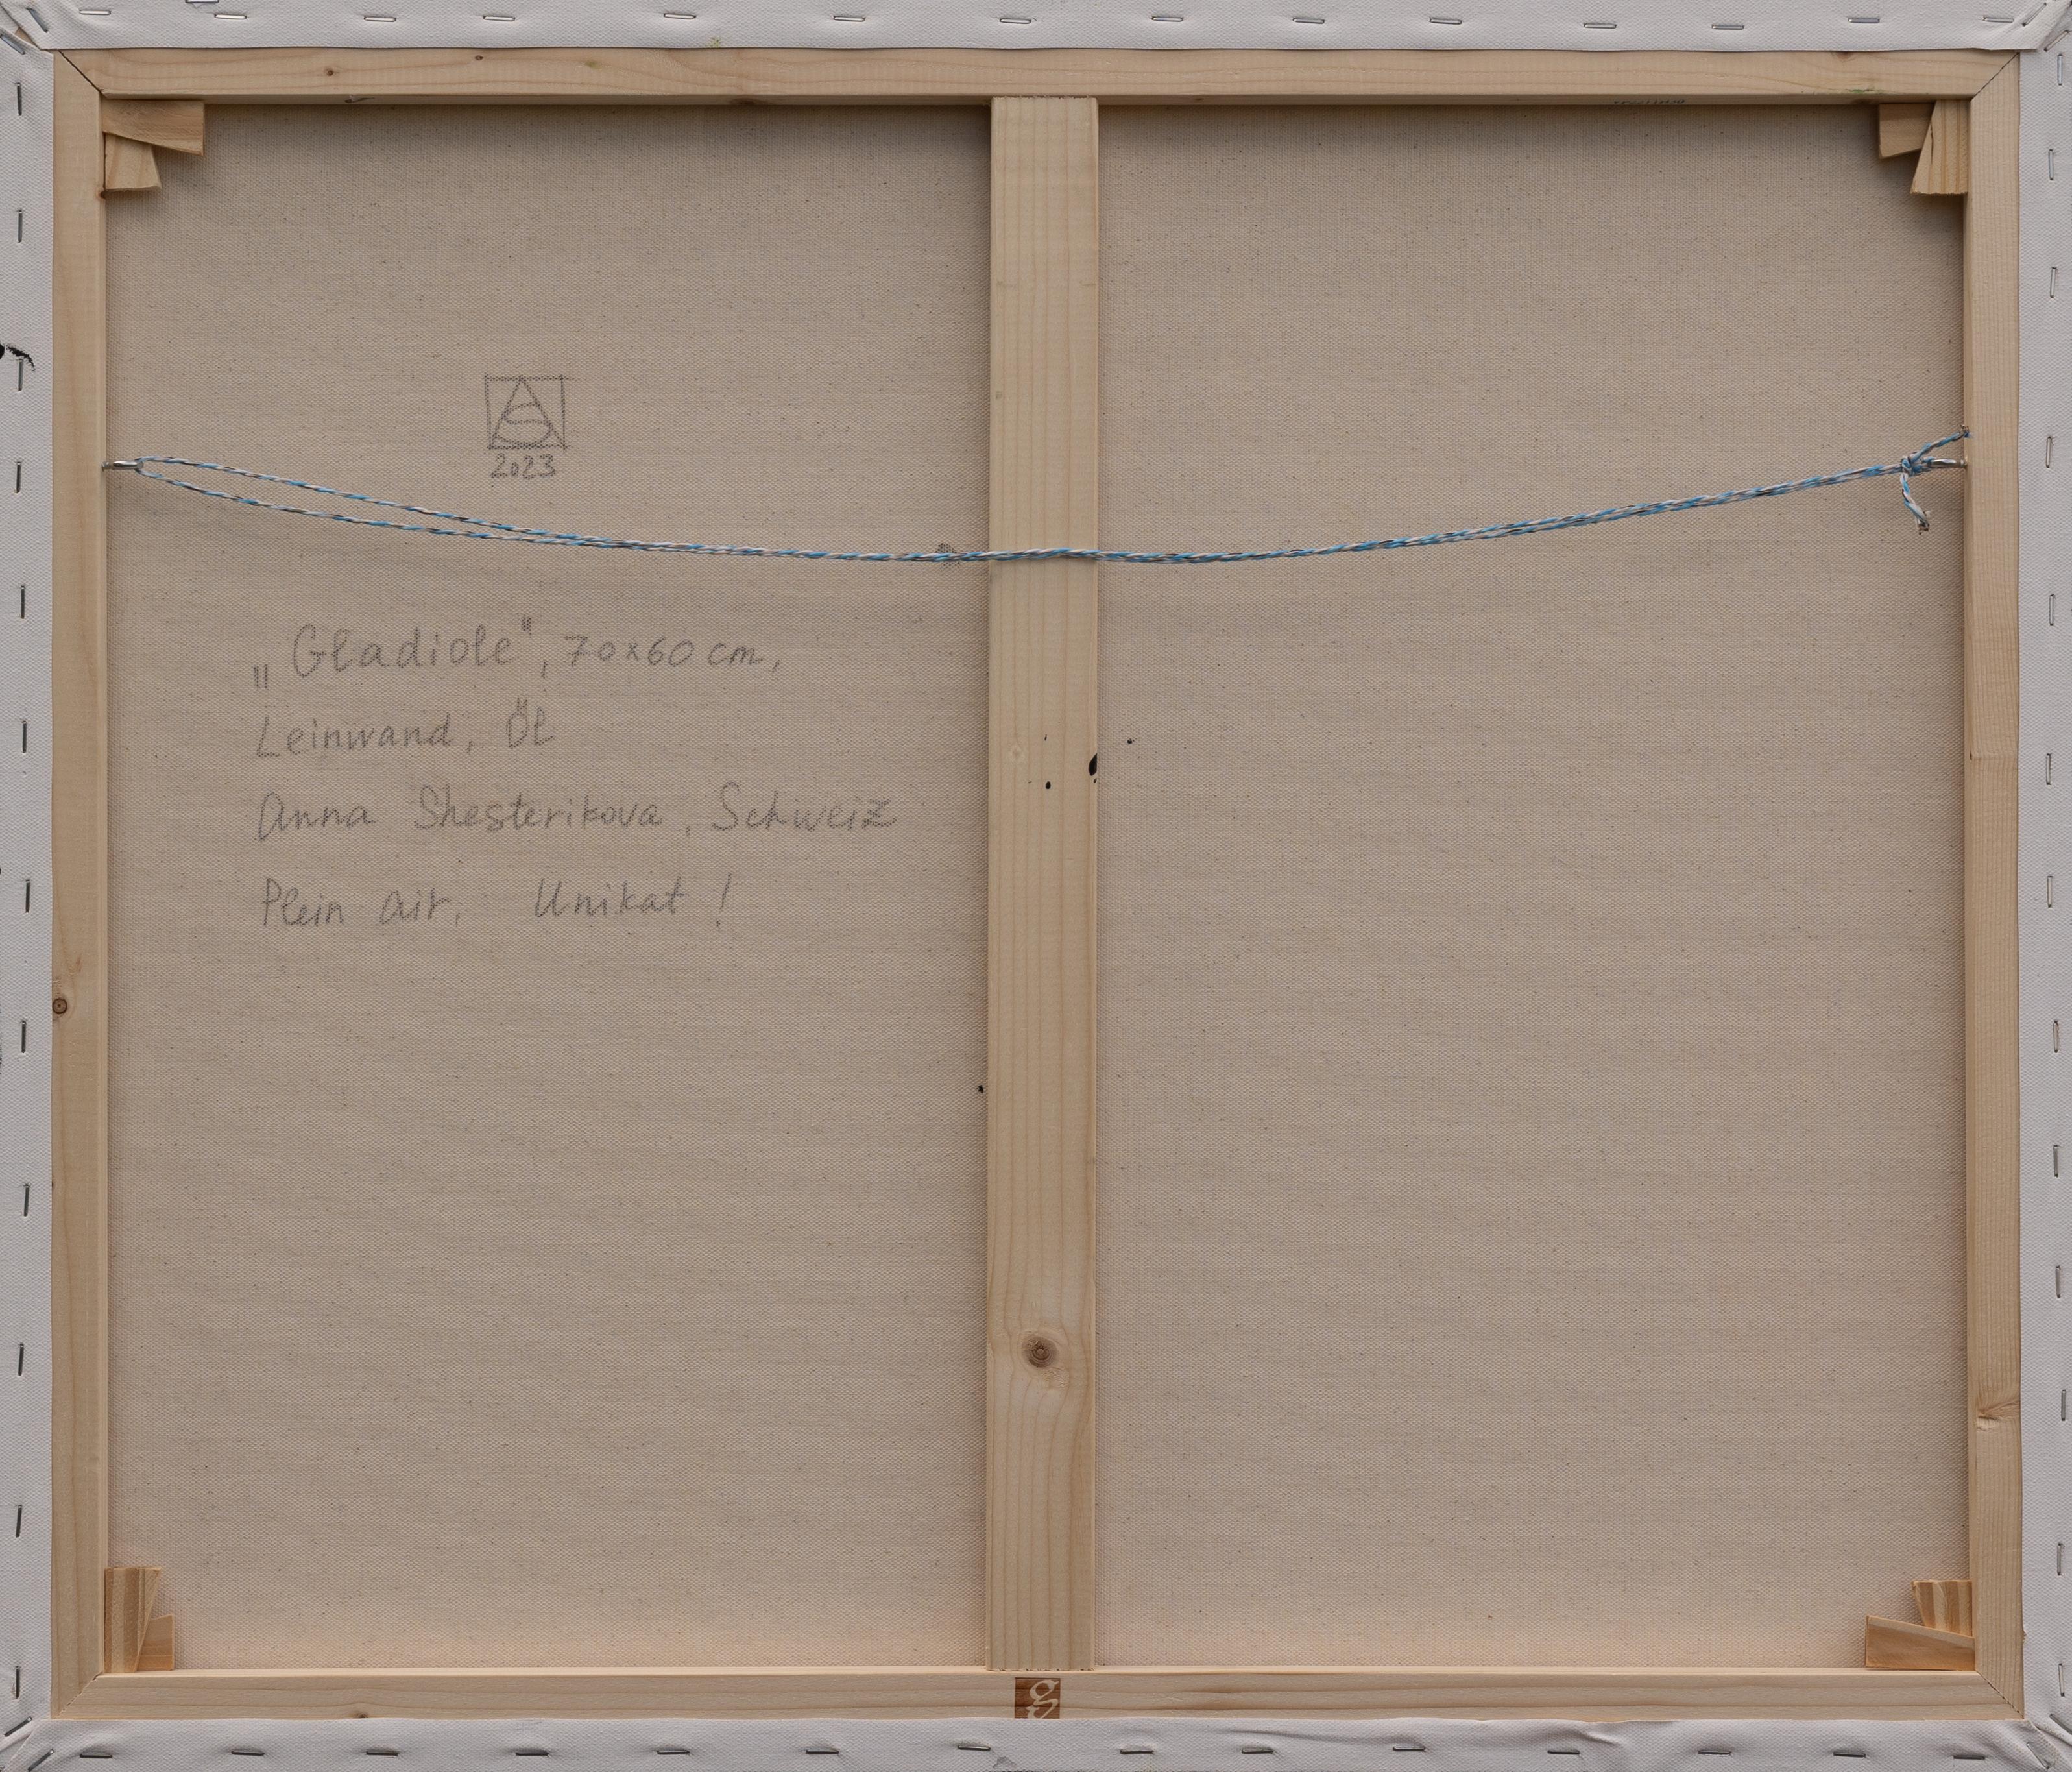 AS
2023
„Gladiole", 70x60 cm,
Leinwand, Öl
Anna Shesterikova, Schweiz
Plein air, Unikat!